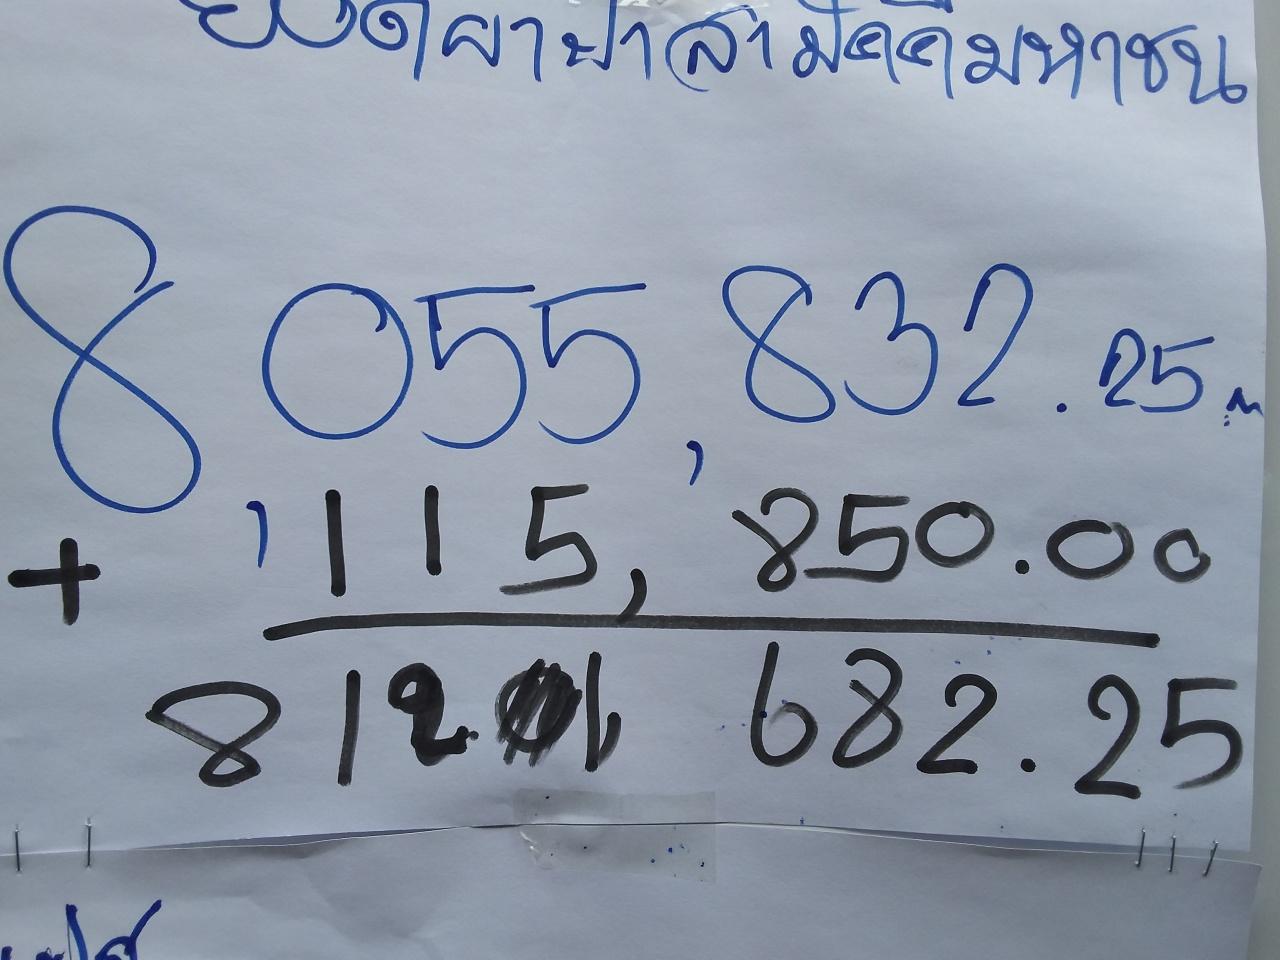 ยอดผาป่าสามัคคีมหาชน
8,055,832.25
+ 115,850.00
8171,682.25